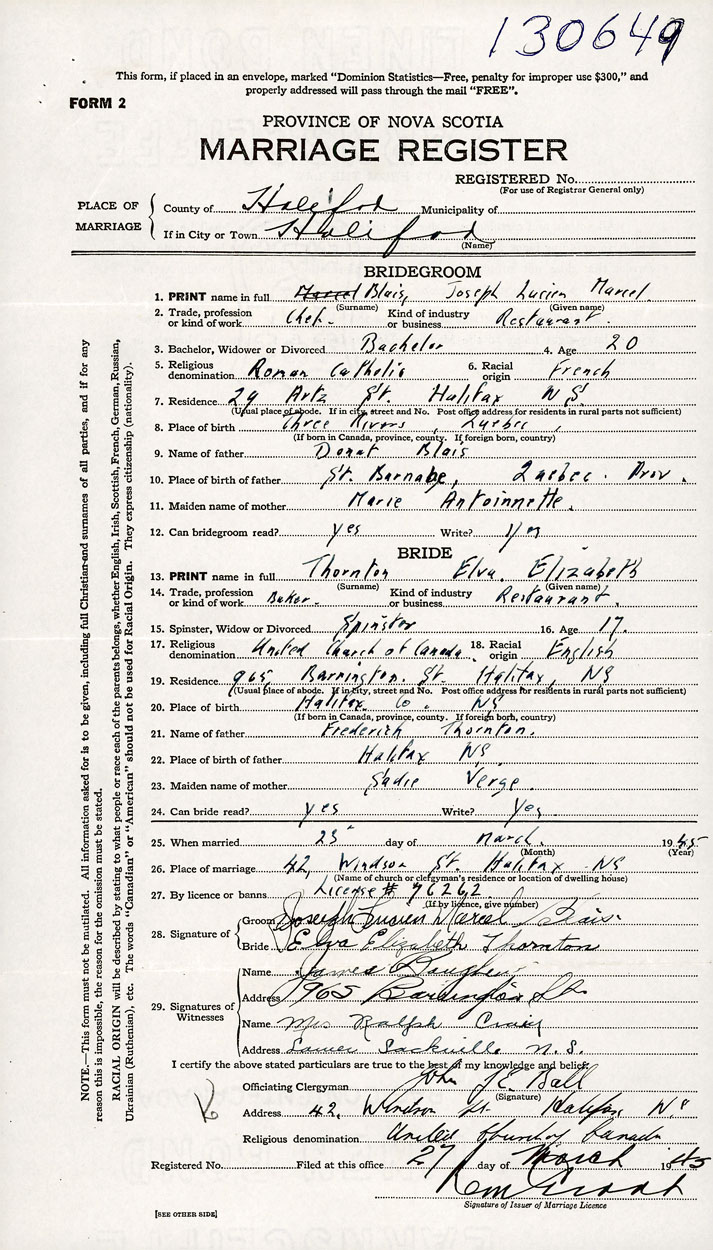 130649
This form, if placed in an envelope, marked "Dominion Statistics—Free, penalty for improper use $300," and
properly addressed will pass through the mail "FREE".
FORM 2
PROVINCE OF NOVA SCOTIA
MARRIAGE REGISTER
REGISTERED No.
(For use of Registrar General only)
PLACE OF MARRIAGE
County of Halifax Municipality of
If in City or Town Halifax
(Name)
BRIDEGROOM
1. PRINT name in full Marcel Blais, Joseph Lucien Marcel
(Surname) (Given name)
2. Trade, profession or kind of work Chef. Kind of industry or business Restaurant.
3. Bachelor, Widower or Divorced Bachelor 4. Age 20
5. Religious denomination Roman Catholic 6. Racial origin French
7. Residence 29 Artz St. Halifax N.S.
(Usual place of abode. If in city, street and No. Post office address for residents in rural parts not sufficient)
8. Place of birth Three Rivers, Quebec
(If born in Canada, province, county. If foreign born, country)
9. Name of father Donat Blais
10. Place of birth of father St. Barnabe, Quebec. Prov.
11. Maiden name of mother Marie Antoinnette.
12. Can bridegroom read? yes Write? yes
BRIDE
13. PRINT name in full Thornton Elva Elizabeth
(Surname) (Given name)
14. Trade, profession or kind of work Baker. Kind of industry or business Restaurant.
15. Spinster, Widow or Divorced Spinster 16. Age 17.
17. Religious denomination United Church of Canada. 18. Racial origin English
19. Residence 965, Barrington. St. Halifax, NS
(Usual place of abode. If in city, street and No. Post office address for residents in rural parts not sufficient)
20. Place of birth Halifax Co. NS
(If born in Canada, province, county. If foreign born, country)
21. Name of father Frederich Thornton.
22. Place of birth of father Halifax NS.
23. Maiden name of mother Sadie Verge.
24. Can bride read? yes Write? Yes
25. When married 25 day of March. 1945
(Month) (Year)
26. Place of marriage 42, Windsor St. Halifax NS
(Name of church or clergyman's residence or location of dwelling house)
27. By licence or banns License # 76262
(If by licence, give number)
28. Signature of
Groom Joseph Lucien Marcel Blais
Bride Elva Elizabeth Thornton
29. Signatures of Witnesses
Name James
Address 965 Barrington St.
Name Mrs Ralph
Address Lower Sackville N.S.
I certify the above stated particulars are true to the best of my knowledge and belief.
Officiating Clergyman John Ball
(Signature)
Address 42, Windsor St. Halifax N.S
Religious denomination United Church of Canada
Registered No. Filed at this office 27 day of March 1945
Signature of Issuer of Marriage Licence
[SEE OTHER SIDE]
NOTE.—This form must not be mutilated. All information asked for is to be given, including full Christian and surnames of all parties, and if for any
reason this is impossible, the reason for the omission must be stated.
RACIAL ORIGIN will be described by stating to what people or race each of the parents belongs, whether English, Irish, Scottish, French, German, Russian,
Ukrainian (Ruthenian), etc. The words "Canadian" or "American" should not be used for Racial Origin. They express citizenship (nationality).